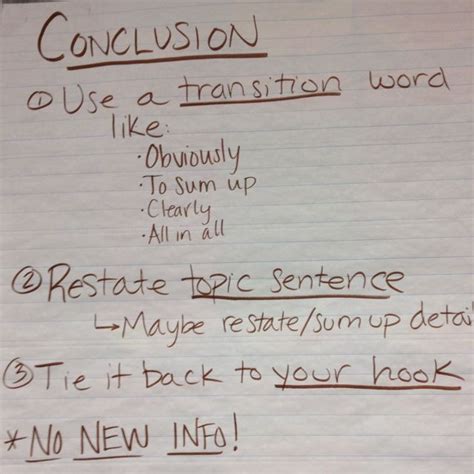 CONCLUSION
① Use a transition word
like:
· Obviously
· To sum up
· Clearly
· All in all
② Restate topic sentence
↳ Maybe restate/sum up detai
③ Tie it back to your hook
* NO NEW INFO!